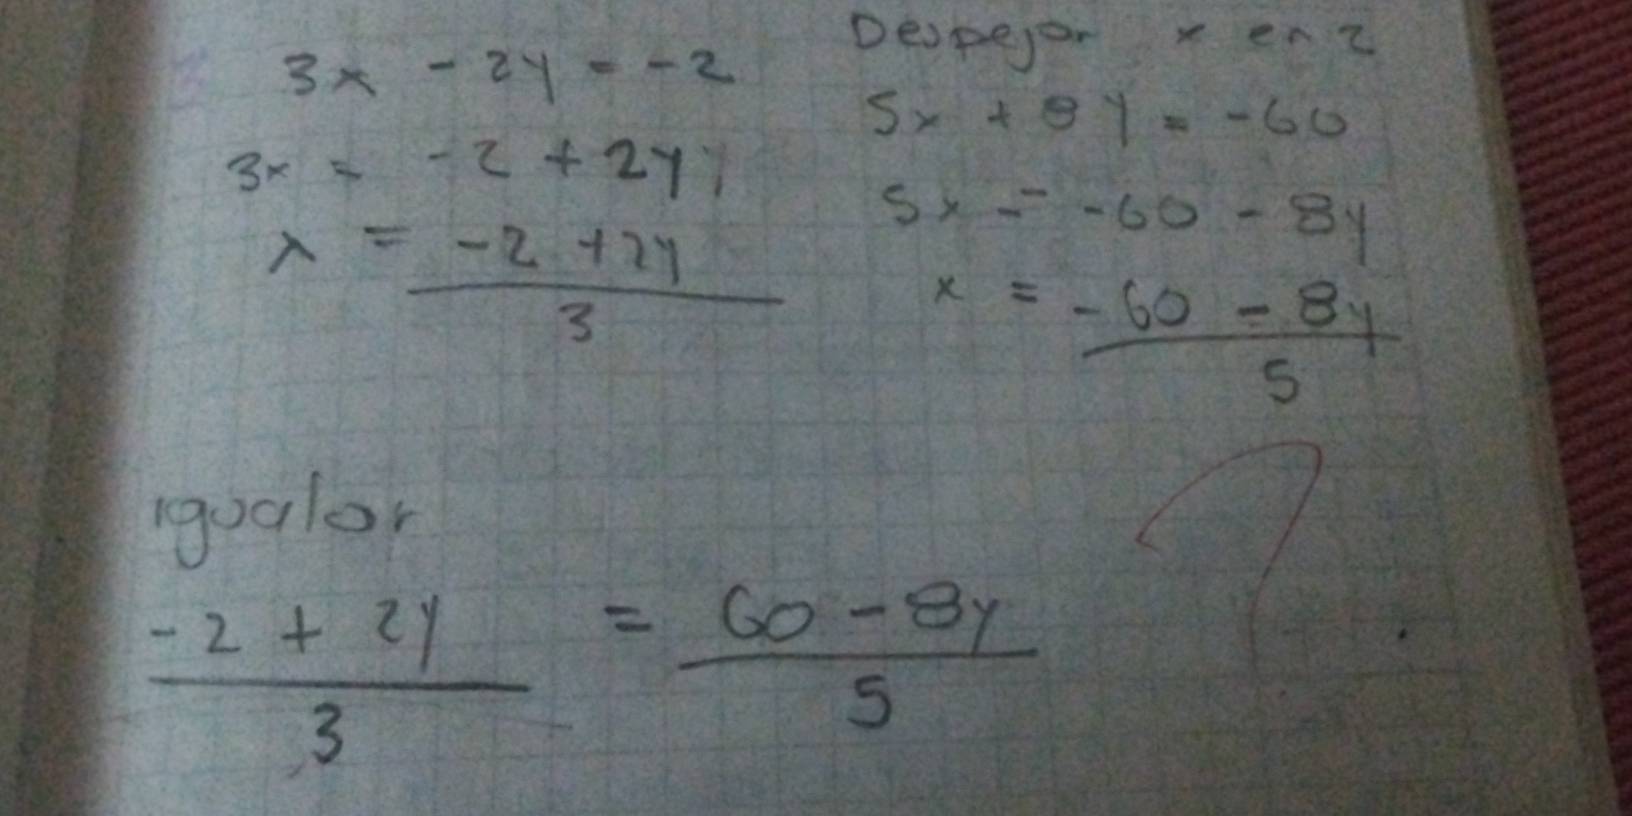 3x - 2y = -2
3x = -2 + 2y
x = -2 + 2y
3
Despejar x en 2
5x + 8y = -60
5x = -60 - 8y
x = -60 - 8y
5
igualar
-2 + 2y = 60 - 8y
3 5
?